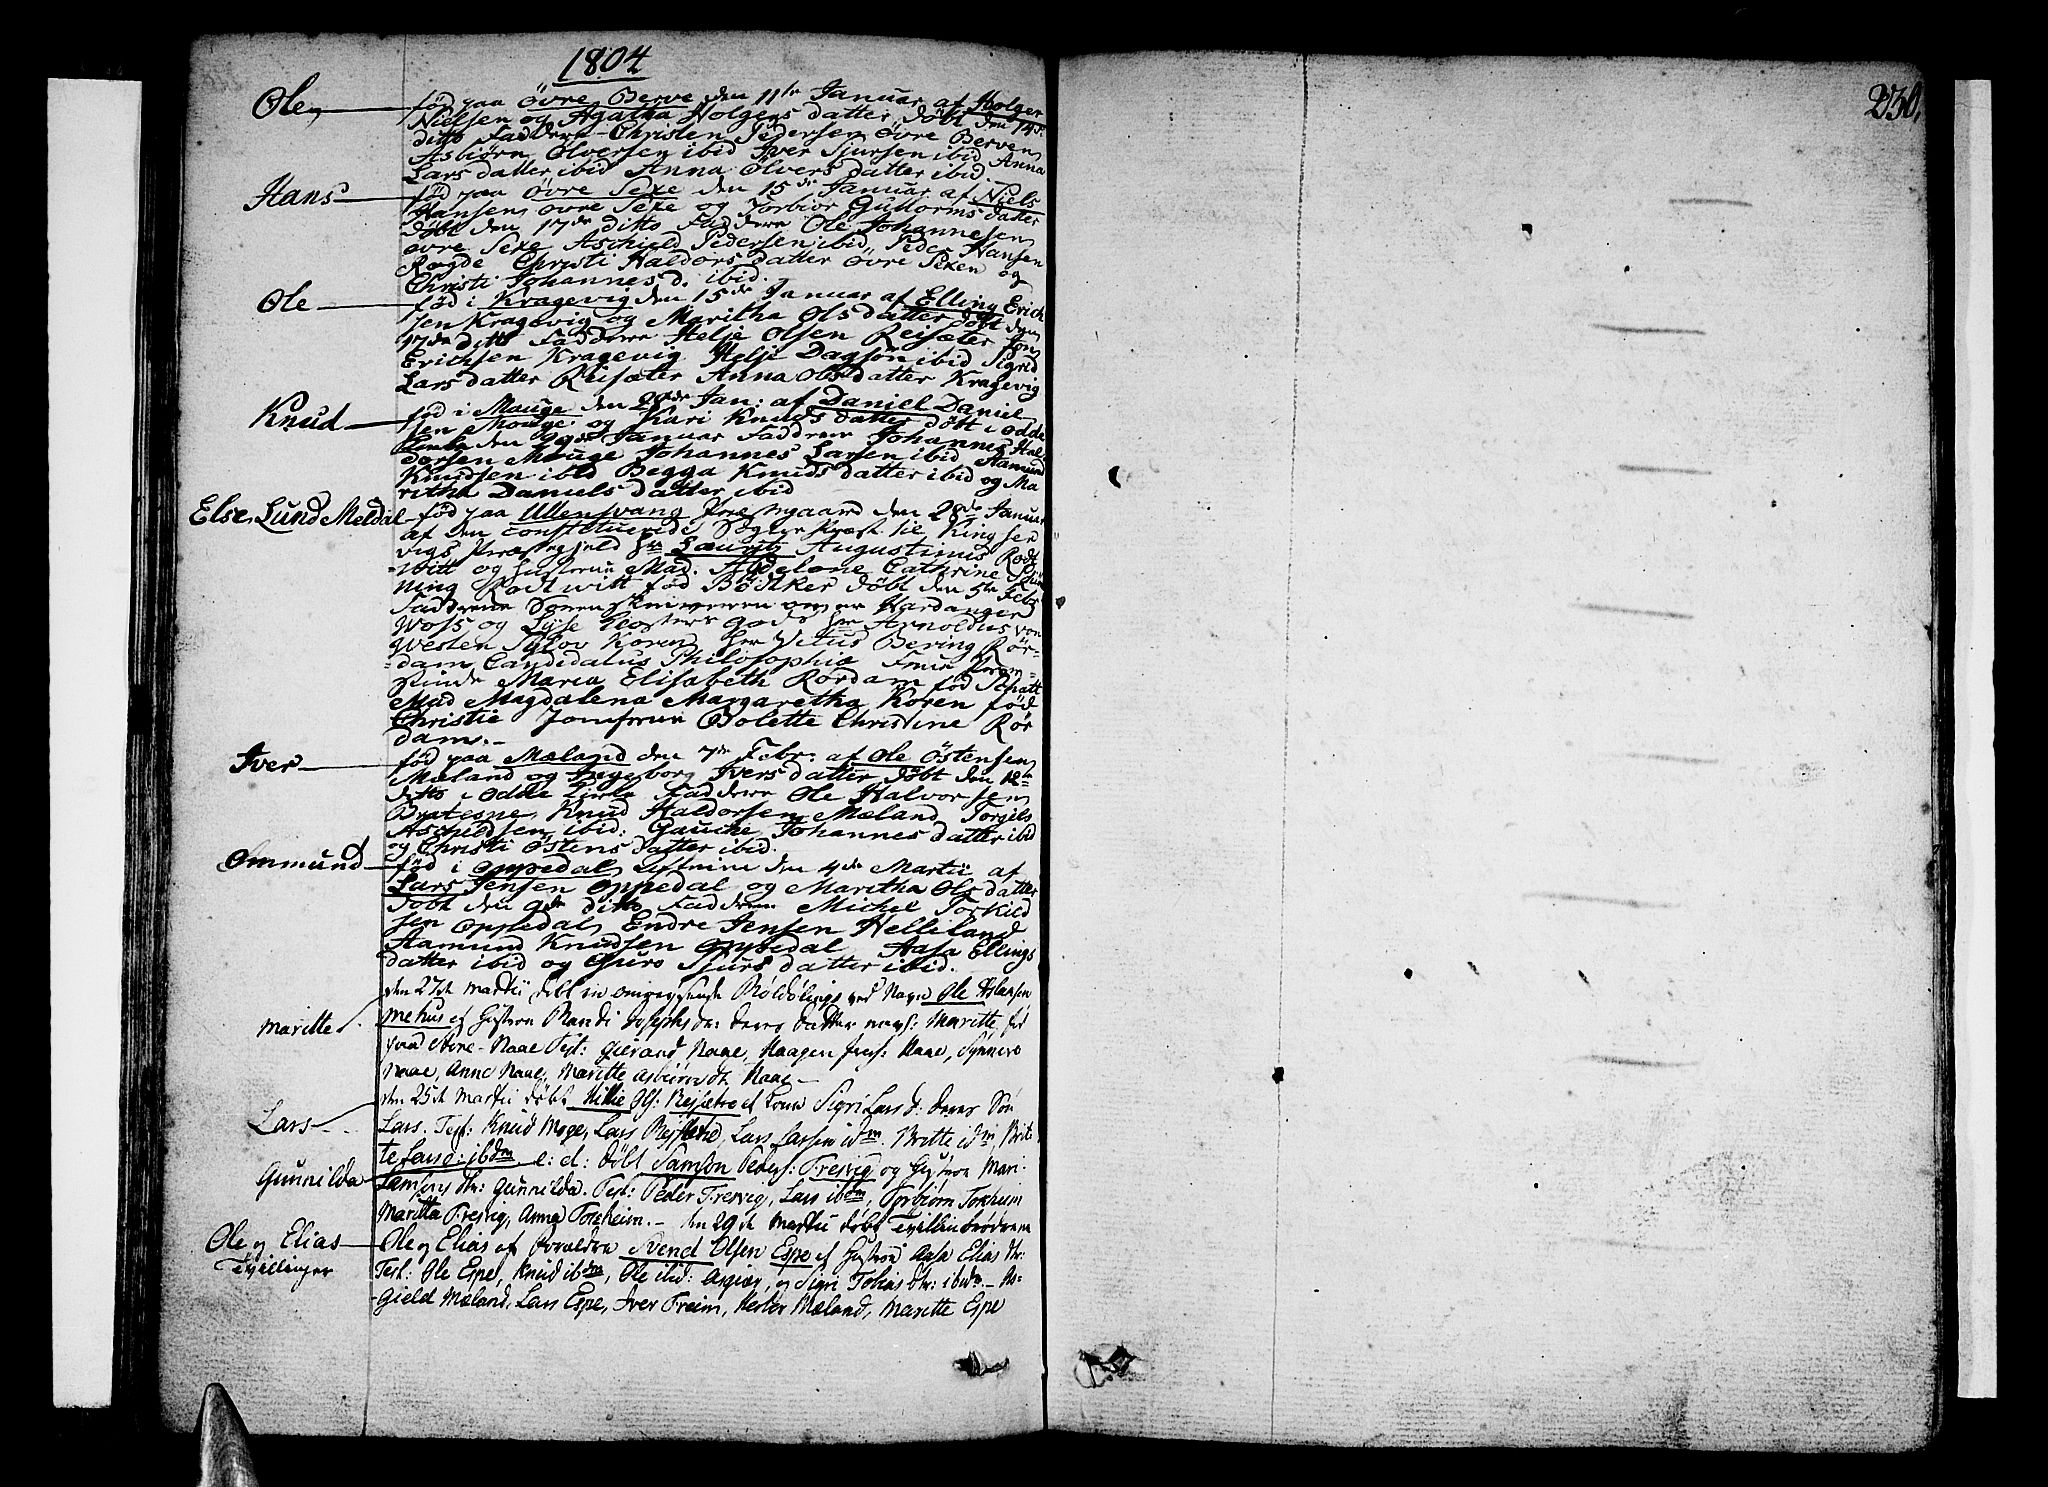 1804
230,
Ole, født paa Övre Berve den 11te Januar af Holger
Nielsen og Agatha Holgers datter döbt den 14de
ditto Faddere Christen Pedersen Övre Berven
Asbiörn Ölversen ibid Iver Sjursen ibid Anna
Lars datter ibid Anna Ölvers datter ibid.
Hans föd paa Övre Sexe den 15de Januar af Niels
Hansen övre Sexe og Torbiör Guttorms datter
döbt den 17de ditto Faddere Ole Johannesen
övre Sexe Aschield Pedersen ibid, Peder Hansen
Rogde Christi Haldors datter övre Sexen og
Christi Johannes d. ibid.
Ole föd i Kragevig den 15de Januar af Elling Erich
sen Kragevig og Maritha Ols datter döbt den
17de ditto Faddere Helje Olsen Reisæter Jon
Erichsen Kragevig Helje Dagsön ibid Sigrid
Lars datter Reisæter Anna Ols datter Kragevig
Knud föd i Mouge den Jan: af Daniel Daniel
sen Mouge og Kari Knuds datter döbt i Odde
den Januar Faddere Johannes Hal
dorsen Mouge Johannes Larsen ibid Aamund
Knudsen ibid Begga Knuds datter ibid og Ma
ritha Daniels datter ibid
Else Lund Meldal föd paa Ullensvang Præstegaard den 28de Januar
af den constituerede Sogne Præst til Kingser
vigs Præstegield Hr Lauritz Augustinus Rodt
witt og Hustrue Mad. Abelone Cathrine
ning Rodtwitt föd Bödtker döbt den 5te Febr
Faddere Sorenskriveren over Hardanger
Woss og Lyse Klosters gods Hr Arnoldus von
Westen Sylow Koren Hr Vitus Bering Rör-
dam Candidatus Philosophiæ Frue
Maria Elisabeth Rördam föd
Mad Magdalena Margaretha Koren föd
Christie Jomfrue Bolette Christine Rör
dam.
Iver föd paa Mæland den 7de Febr: af Ole Östensen
Mæland og Ingeborg Ivers datter döbt den 12te
ditto i Odde Kirke Faddere Ole Halvorsen
Bratesne, Knud Haldorsen Mæland Torgils
Aschieldsen ibid: Gauche Johannes datter ibid
og Christi Östens datter ibid.
Ommund föd i Oppedal den 4de Martii af
Lars Jensen Oppedal og Maritha Ols datter
döbt den 9de ditto Faddere Michel Torkild
sen Oppedal, Endre Jensen Helleland
Aamund Knudsen Oppedal Aasa Ellings
datter ibid og Guro Sjurs datter ibid.
Maritte den 27de Martii döbt en omreysende Röldöling ved Navn Ole Aslaksen
Mehus og Hustroe Randi Josephs dr: deres datter navn: Maritte, föd
paa Store-Naae Test: Gierand Naae, Haagen Naae, Synneve
Naae, Anne Naae, Maritte Asbiörn dtr Naae
Lars den 25de Martii döbt Hillie Ols: Reisætre og Kone Sigri Lars d: deres Sön
Lars. Test: Knud Moge, Lars Reisetre, Lars Larsen ibdm. Britte ibdm, Brit-
te Lars d: ibdm
Gunnilda e: d: döbt Samson Peders: Fresvig og Hustroe Mari-
Samsons dtr: Gunnilda. Test: Peder Fresvig, Lars ibdm, Torbjörn Torheim
Maritta Fresvig, Anna Torsheim.
Ole og Elias Tvillinger den 29de Martii döbt Tvillinbrödrene
Ole og Elias af Forældre Svend Olsen Espe og Hustroe Aasa Elias dtr:
Test: Ole Espe, Knud ibdm, Ole ibid: og Sigri Tobias dtr: ibidm. As-
gield Mæland, Lars Espe, Iver Freim, Mæland, Maritte Espe